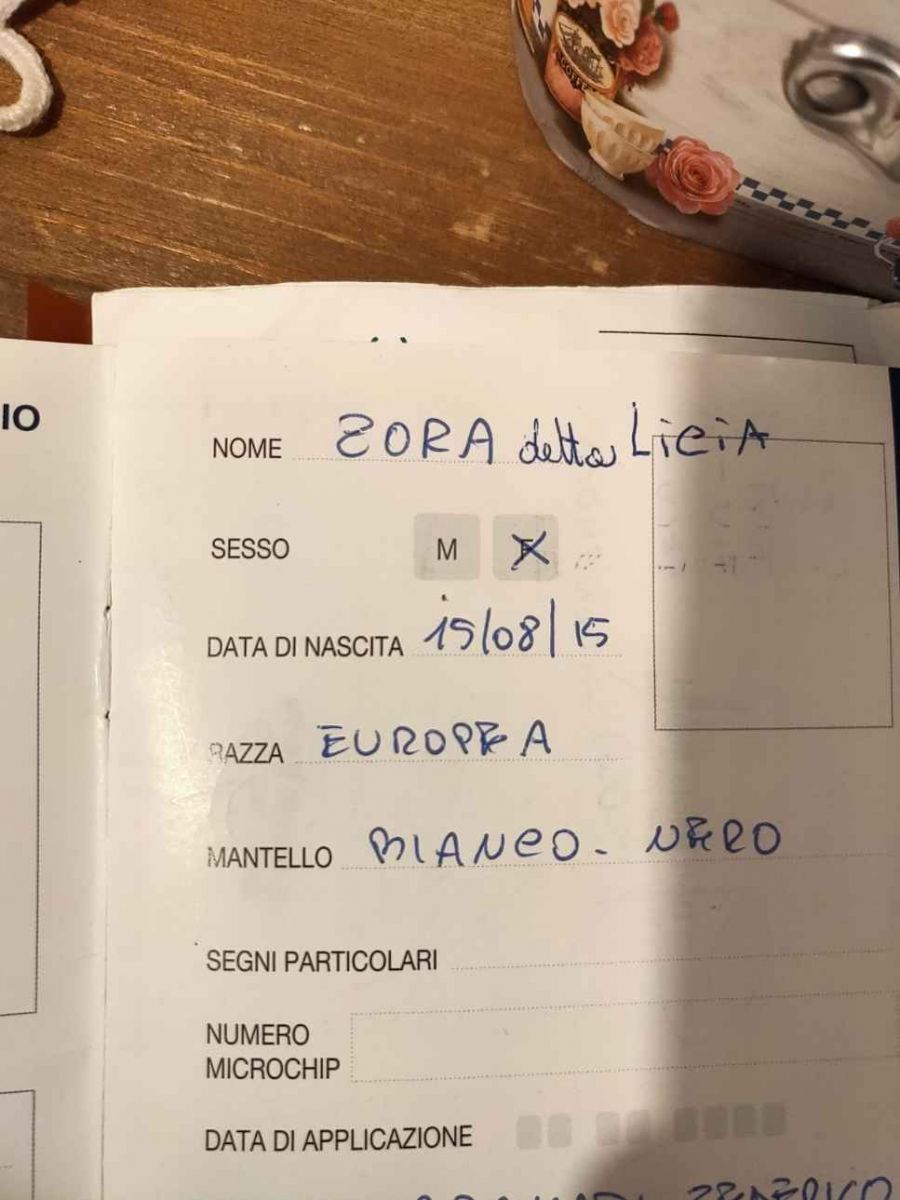 IO
NOME ZORA detta LiciA
SESSO M F
DATA DI NASCITA 15/08/15
RAZZA EUROPEA
MANTELLO BIANCO - NERO
SEGNI PARTICOLARI
NUMERO
MICROCHIP
DATA DI APPLICAZIONE